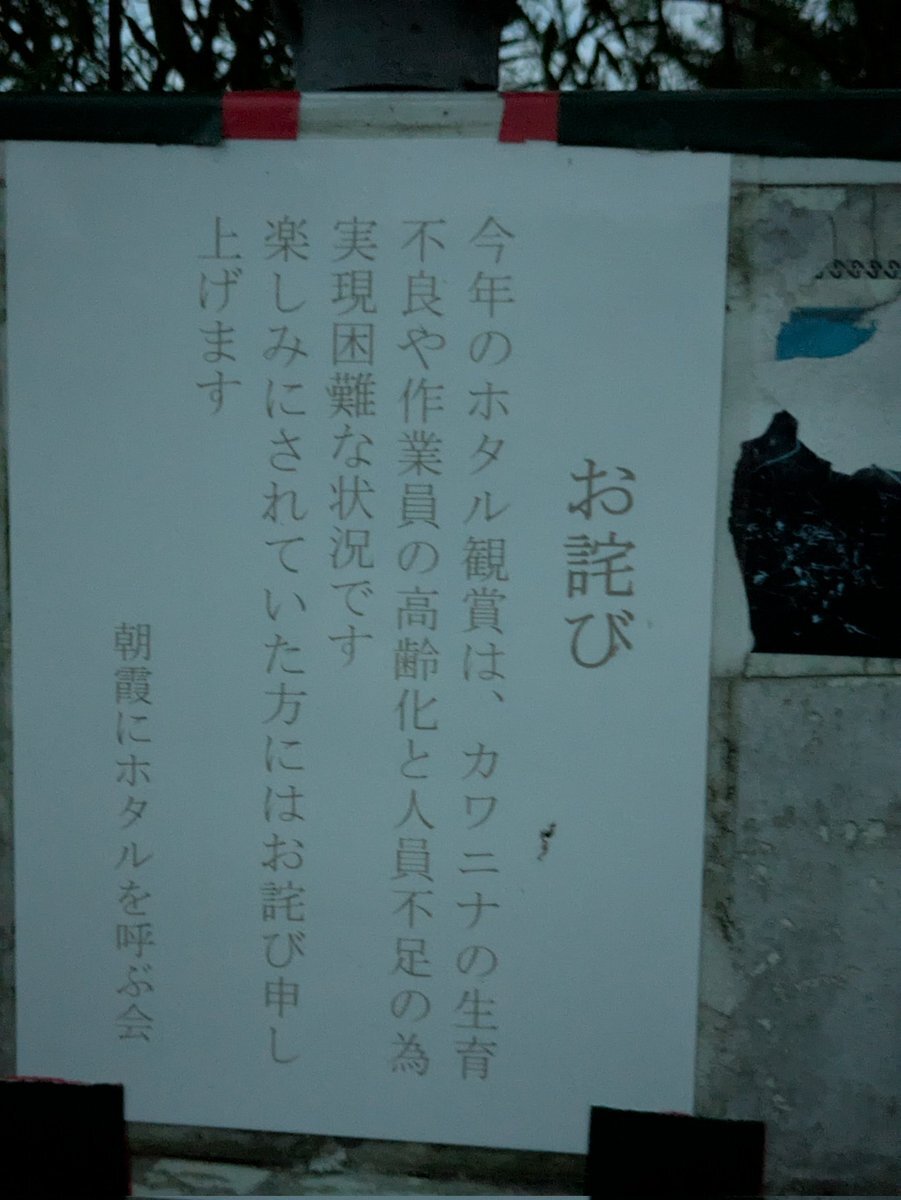 お詫び
今年のホタル観賞は、カワニナの生育
不良や作業員の高齢化と人員不足の為
実現困難な状況です
楽しみにされていた方にはお詫び申し
上げます
朝霞にホタルを呼ぶ会